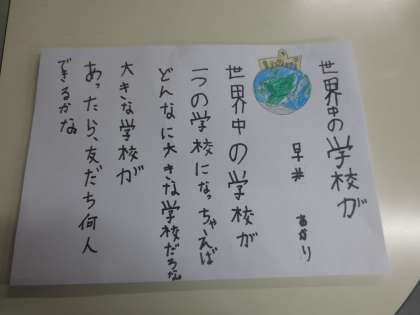 世界中の学校が
早井 あかり
世界中の学校が
一つの学校になっちゃえば
どんなに大きな学校だろな
大きな学校が
あったら、友だち何人
できるかな